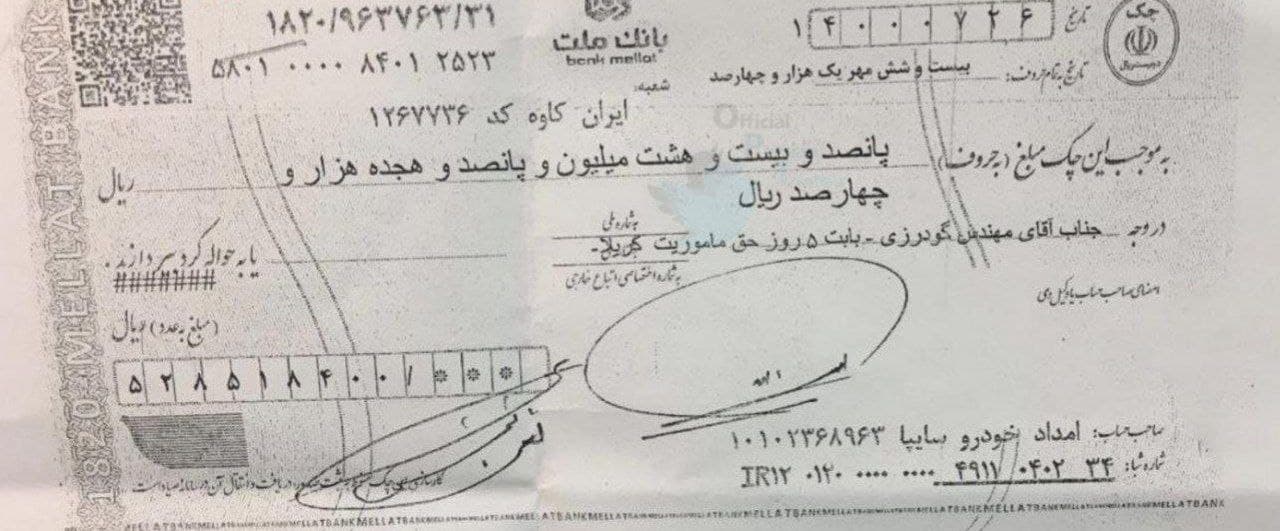 ۱۸۲۰/۹۶۳۷۶۳/۳۱
۵۸۰۱ ۰۰۰۰ ۸۴۰۱ ۲۵۲۳
بانک ملت
bank mellat
چک
تاریخ ۱۴۰۰۰۷۲۶
تاریخ به تمام حروف: بیست و شش مهر یک هزار و چهارصد
شعبه:
ایران کاوه کد ۱۲۶۷۷۳۶
Official
به موجب این چک مبلغ (به حروف) پانصد و بیست و هشت میلیون و پانصد و هجده هزار و ریال
چهارصد ریال
در وجه جناب آقای مهندس گودرزی - بابت ۵ روز حق ماموریت کربلا-
به شماره ملی
یا به حواله کرد بپردازند.
به شماره اختصاصی اتباع خارجی
#######
امضای صاحب حساب یا وکیل وی
(مبلغ به عدد) ریال
۵۲۸۵۱۸۴۰۰/***
صاحب حساب: امداد خودرو سایپا ۱۰۱۰۲۳۶۸۹۶۳
شماره شبا: IR۱۲ ۰۱۲۰ ۰۰۰۰ ۰۰۰۰ ۴۹۱۱ ۰۴۰۲ ۳۴
1820 MELLAT BANK
MELLATBANKMELLATBANKMELLATBANK